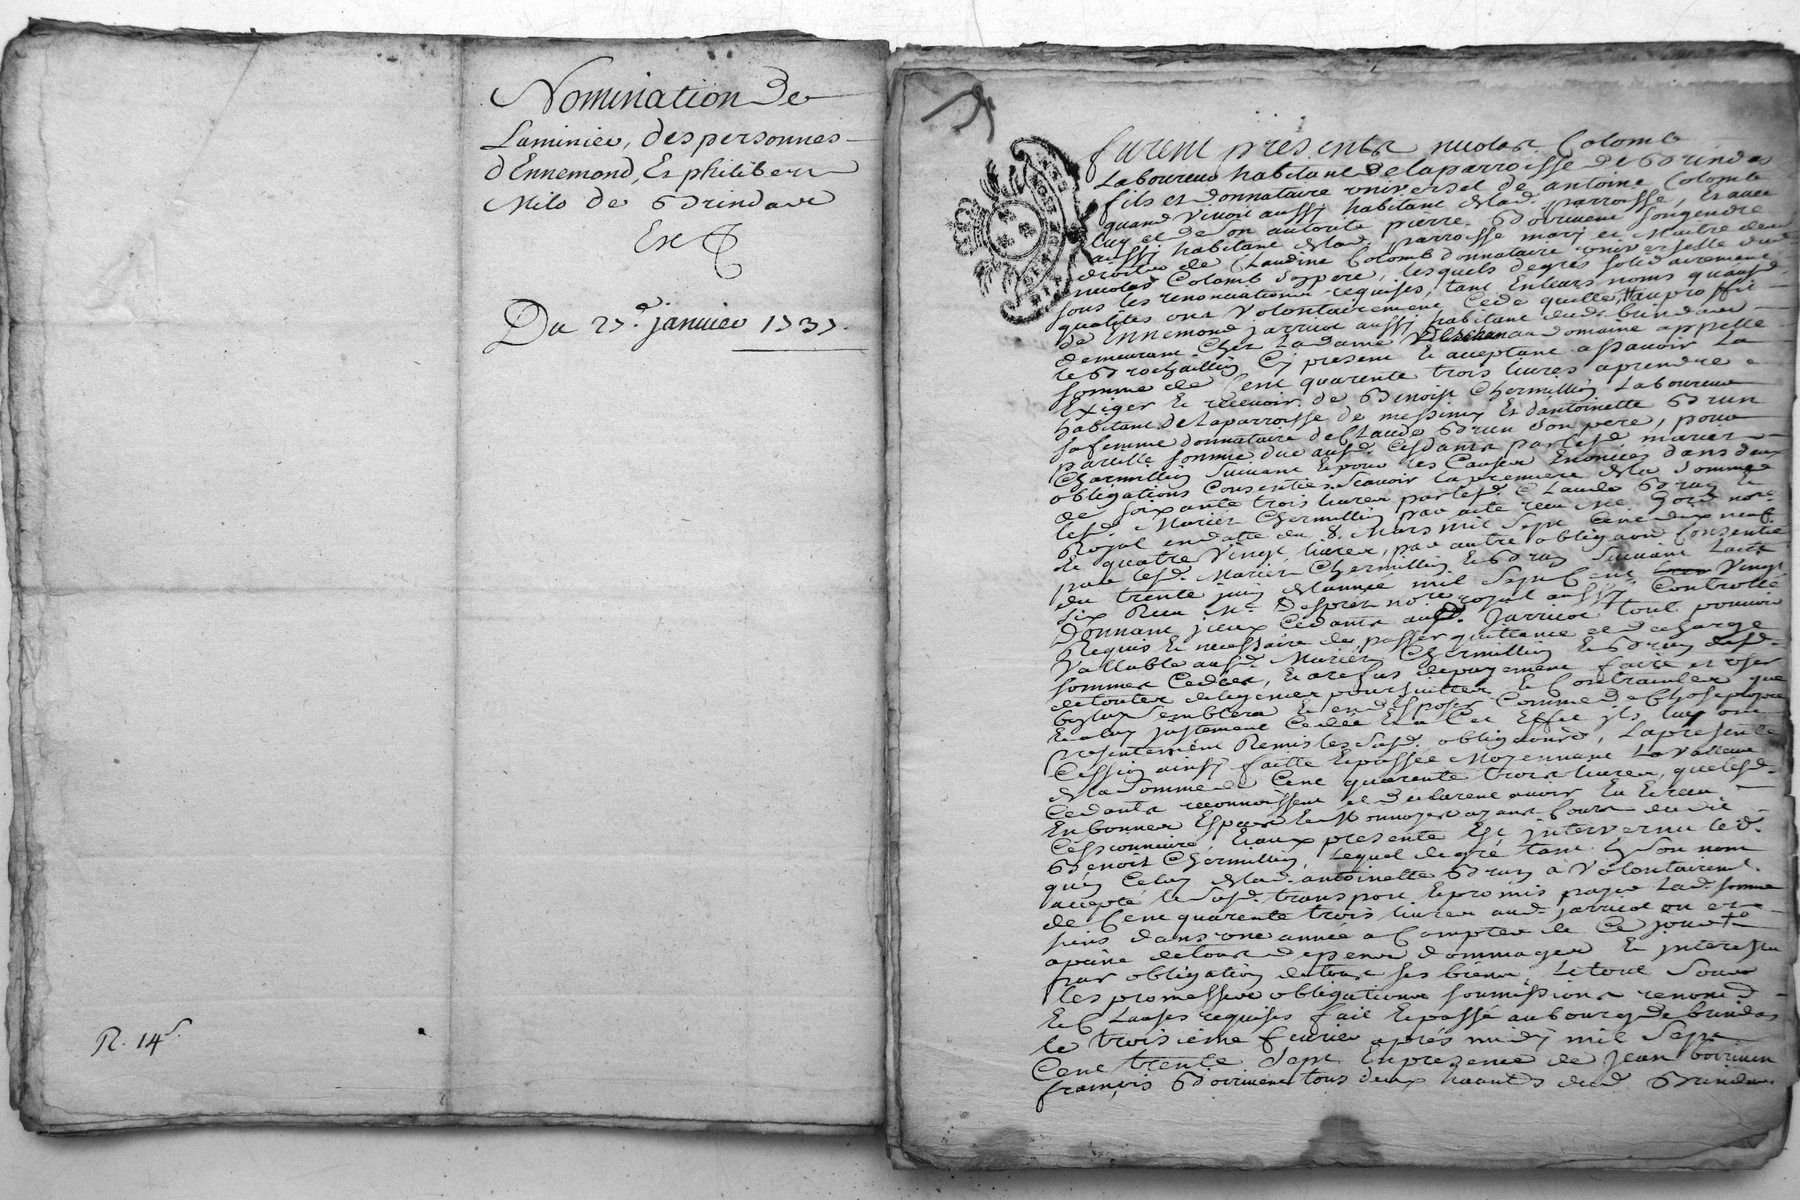 Nomination de
des personnes
d'Ennemond, Et philibert
Milo de Brindas
Du 27e janvier 1737.
R. 14s
furent presents nicolas Colomb
Laboureur habitant de la parroisse de Brindas
fils et donnataire universel de antoine Colomb
quand vivoit aussy habitant de lad. parroisse, Et avec
luy et de son autorité pierre Boiriven son gendre
aussy habitant de lad. parroisse mary et Maitre des
droits de Claudine Colomb donnataire universelle dud.
nicolas Colomb son pere, lesquels de gré solidairement
sous les renonciations requises, tant En leurs noms quausd.
qualités ont volontairement Cedé quitté au proffit
de Ennemond jarricot aussy habitant dud. brindas
demeurant Chez La dame au domaine appellé
le Brochaillon Cy present Et acceptant assavoir La
somme de Cent quarente trois livres a prendre
Exiger Et recevoir de Benoist Chermillion Laboureur
habitant de La parroisse de messimy Et dantoinette Brun
sa femme donnataire de Claude Brun son pere, pour
pareille somme due ausd. Cedants par lesd. mariés
Chermillion suivant Et pour les Causes Enoncées dans deux
obligations Consenties scavoir la premiere de la somme
de soixante trois livres par lesd. Claude Brun Et
lesd. Mariés Chermillion par acte receu Me notre
Royal en datte du 8. Mars mil sept Cent dix neuf
Et quatre vingt livres, par autre obligaon Consentie
par lesd. Mariés Chermillion Et Brun suivant Lacte
du trente juin de lannée mil sept Cent vingt
six Receu Me Desprez notre royal aussy Controllé
Donnant jceux Cedants aud. jarricot tout pouvoir
Requis Et necessaire de passer quittance et decharge
Vallable ausd. Mariés Chermillion Et Brun desd.
sommes Cedées, Et a refus de payement faire et user
de toutes diligences poursuittes Et Contraintes que
bon luy semblera Et en disposer Comme de Chose propre
Et a luy justement Cedée Et a Cet Effet jls luy ont
presentement Remis les susd. obligations, La presente
Cession ainsy faitte Et passée Moyennant La valleur
de la somme de Cent quarente trois livres, que lesd.
Cedants reconnoissent et declarent avoir Eu Et receu
En bonnes Especes Et Monnoyes ayant Cours dud.
Cessionnaire, Et aux presente Est jntervenu led.
Benoit Chermillion, Lequel de gré tant En son nom
qu'en Celuy de lad. antoinette Brun a Volontairemt.
accepté le susd. transport Et promis payer Lad. somme
de Cent quarente trois livres aud. jarricot ou es
siens dans une année a Compter de Ce jour
a peine de tous depens dommages Et jnterests
par obligation de tous ses biens, Le tout sous
les promesses obligations soumissions renond.
Et Clauses requises fait Et passé au bourg de brindas
le troisieme fevrier aprés midy mil sept
Cent trente sept En presence de Jean boiriven
françois Boiriven tous deux haants dud. Brindas